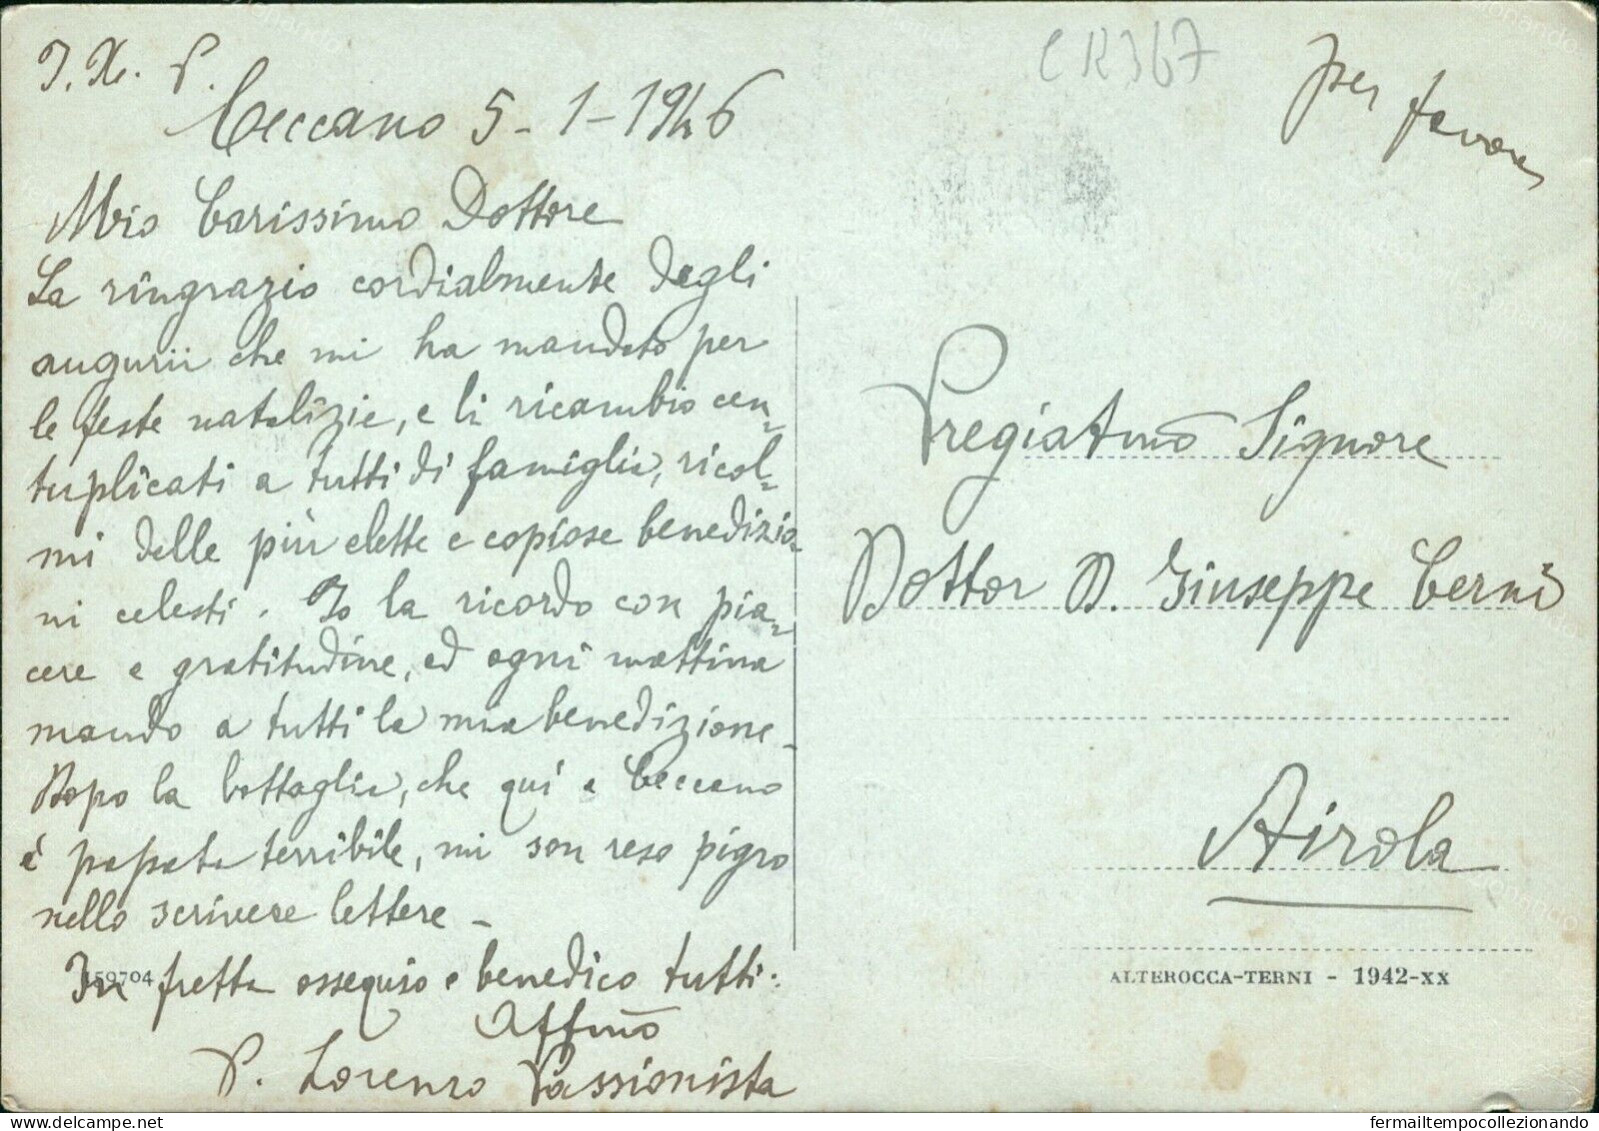 J. X. P.
Ceccano 5-1-1946
Mio Carissimo Dottore
La ringrazio cordialmente degli
augurii che mi ha mandato per
le feste natalizie, e li ricambio cen-
tuplicati a tutti di famiglia, ricol-
mi delle più elette e copiose benedizio-
ni celesti. Io la ricordo con pia-
cere e gratitudine, ed ogni mattina
mando a tutti la mia benedizione -
Dopo la battaglia, che qui a Ceccano
è passata terribile, mi son reso pigro
nello scrivere lettere -
In fretta ossequio e benedico tutti.
Affmo
P. Lorenzo Passionista
159704
CR367
per favore
Pregiatmo Signore
Dottor D. Giuseppe Cerni
Airola
ALTEROCCA-TERNI - 1942-XX
fermailtempocollezionando